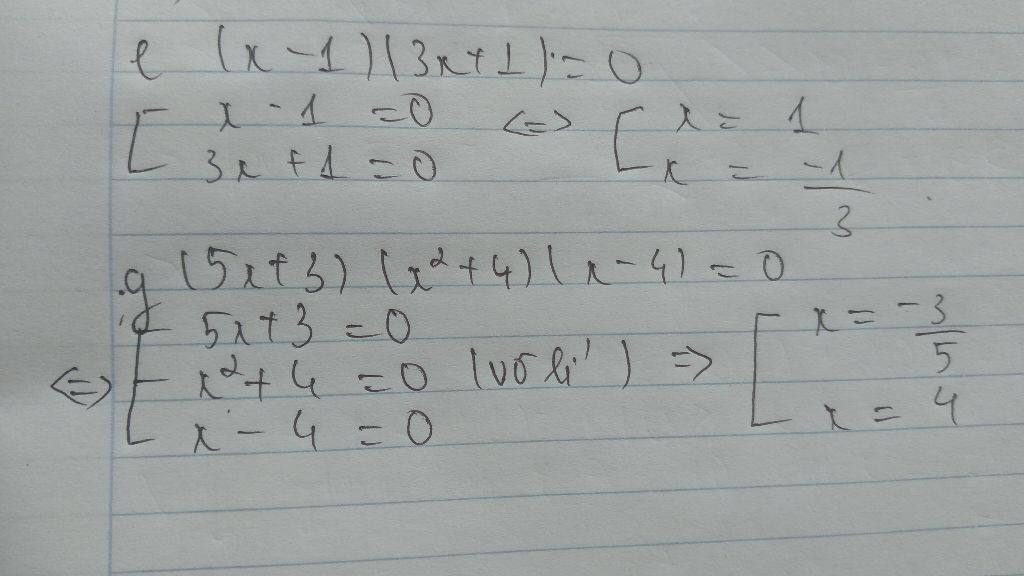 e (x-1)(3x+1)=0
[ x-1 =0 <=> [ x = 1
3x+1=0 x = -1/3
g (5x+3)(x²+4)(x-4)=0
5x+3=0 x = -3/5
<=> [ x²+4=0 (vô lí) => [
x-4=0 x=4